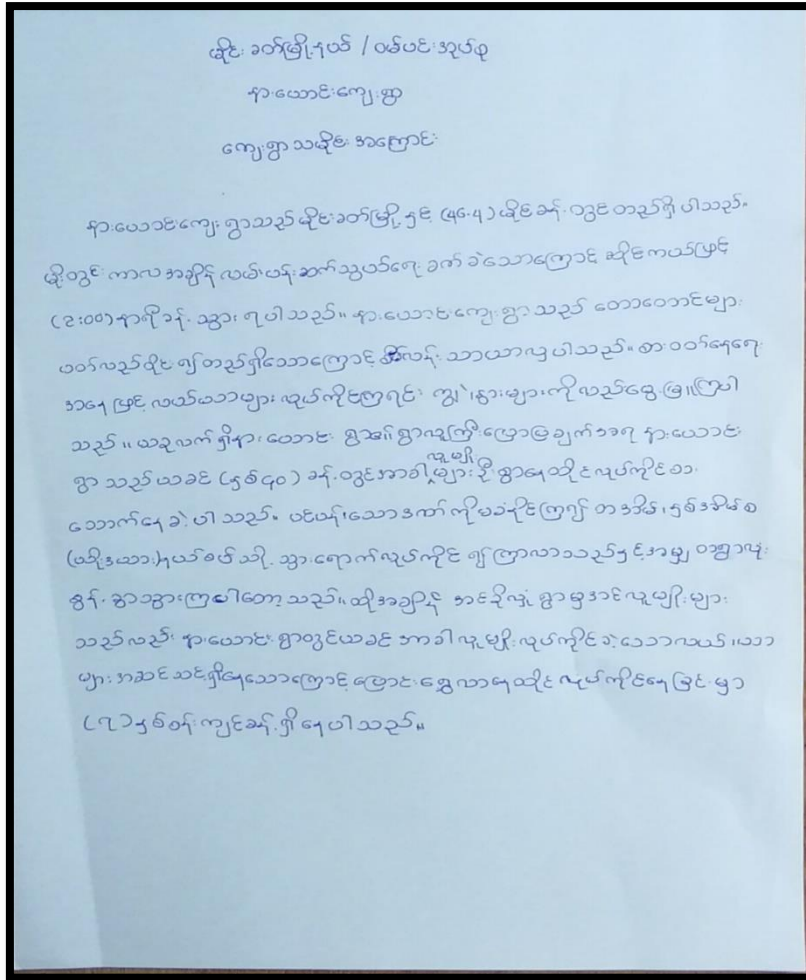 မိုင်းခတ်မြို့နယ် / ဝမ်ပင်းအုပ်စု
နားယောင်းကျေးရွာ
ကျေးရွာသမိုင်းအကြောင်း
နားယောင်းကျေးရွာသည် မိုင်းခတ်မြို့နှင့် (၅၆.၅) မိုင်ခန့်တွင် တည်ရှိပါသည်။
မိုးတွင်းကာလအချိန် လမ်းပန်းဆက်သွယ်ရေး ခက်ခဲသောကြောင့် ဆိုင်ကယ်ဖြင့်
(၃:၀၀) နာရီခန့် သွားရပါသည်။ နားယောင်းကျေးရွာသည် တောတောင်များ
ပတ်လည်ဝိုင်း၍တည်ရှိသောကြောင့် စိမ်းလန်းသာယာလှပါသည်။ စားဝတ်နေရေး
အနေဖြင့် လယ်ယာများ လုပ်ကိုင်ကြရင်း ကျွဲ၊ နွားများကိုလည်းမွေးမြူကြပါ
သည်။ ယခုလက်ရှိနားယောင်းရွာ၏ ရွာလူကြီးပြောပြချက်အရ နားယောင်း
ရွာသည် ယခင် (နှစ် ၄၀) ခန့်တွင် အာခါလူမျိုးများ ဦးစွာနေထိုင်လုပ်ကိုင်စား
သောက်နေခဲ့ပါသည်။ ပင်ပန်းသောဒဏ်ကိုမခံနိုင်ကြ၍ တအိမ်၊ နှစ်အိမ်စ
(ယိုးဒယား) နယ်စပ်သို့ သွားရောက်လုပ်ကိုင်၍ကြာလာသည်နှင့်အမျှ တရွာလုံး
စွန့်ခွာသွားကြပါတော့သည်။ ထိုအချိန် အင်ခိုလှုံရွာမှအင်လူမျိုးများ
သည်လည်း နားယောင်းရွာတွင်ယခင် အာခါလူမျိုးလုပ်ကိုင်ခဲ့သောလယ်၊ ယာ
များ အဆင်သင့်ရှိနေသောကြောင့် ပြောင်းရွှေ့လာနေထိုင်လုပ်ကိုင်နေခြင်းမှာ
(၇) နှစ်ဝန်းကျင်ခန့်ရှိနေပါသည်။